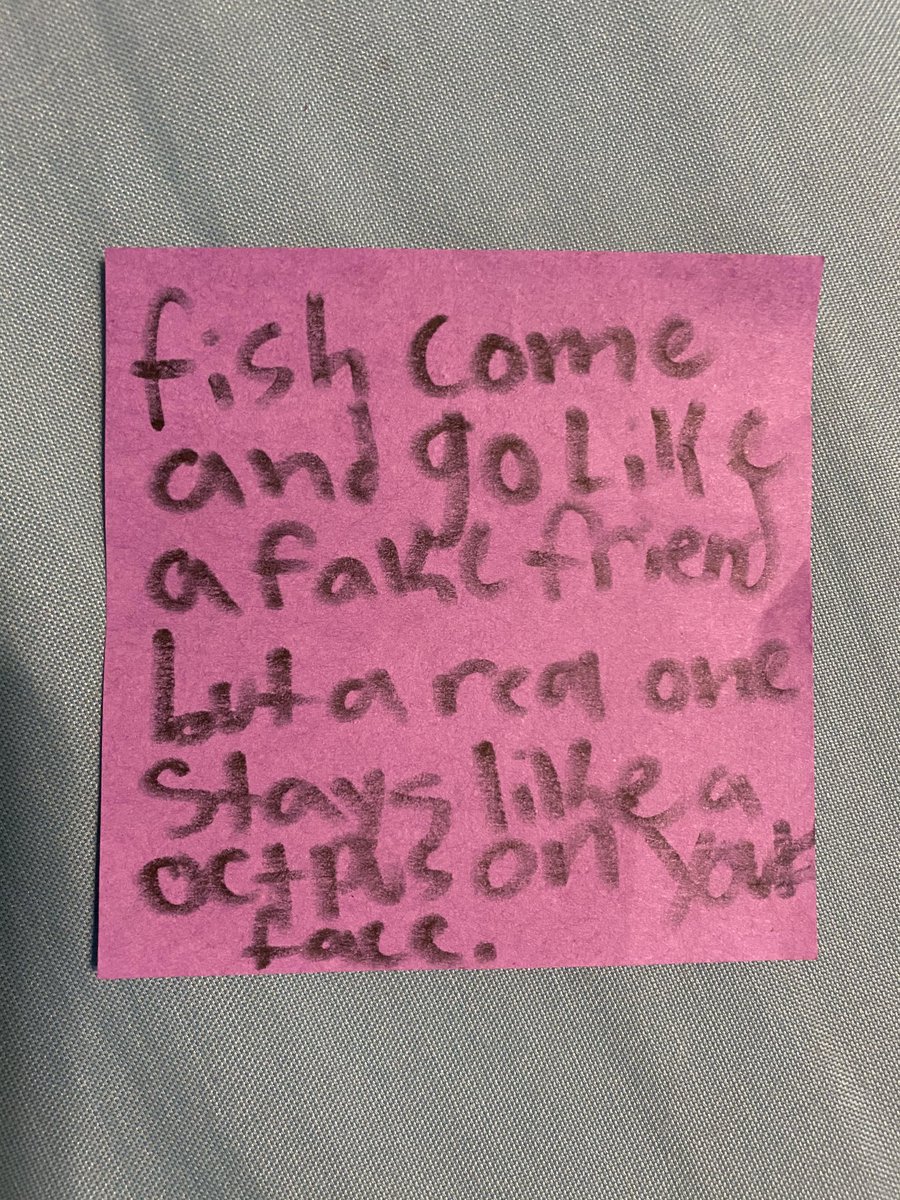 fish come
and go Like
a fake friend
but a real one
stays like a
octpus on your
face.